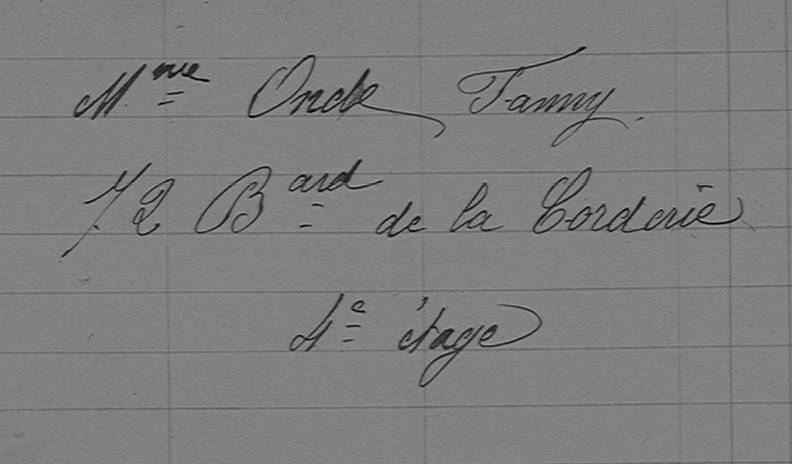 Mme Onde Fanny.
72 Bard de la Corderie
4e étage